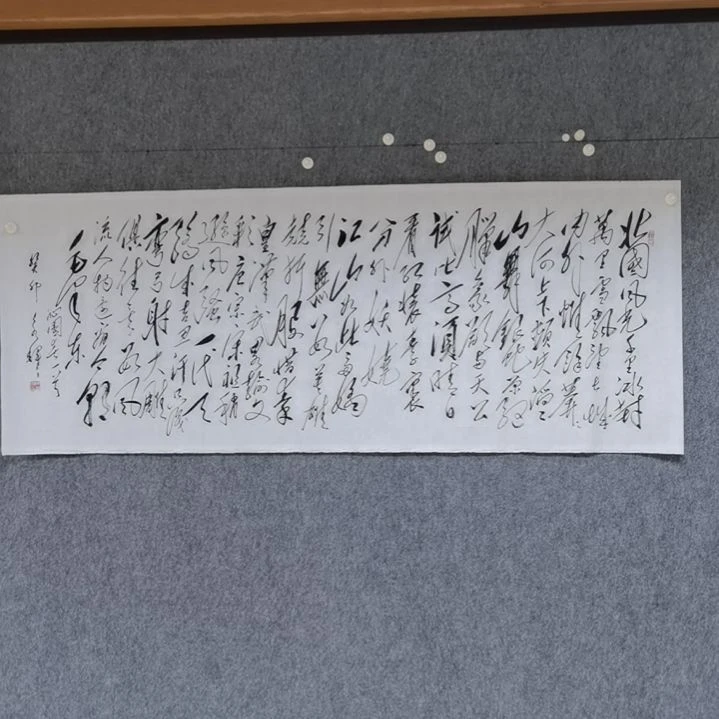 北國風光千里冰封
萬里雪飄望長城
内外惟餘莽莽
大河上下頓失滔滔
山舞銀蛇原馳
臘象欲與天公
試比高須晴日
看紅裝素裹
分外妖嬈
江山如此多嬌
引無數英雄
競折腰惜秦
皇漢武略輸文
彩唐宗宋祖稍
遜風騷一代天
驕成吉思汗只識
彎弓射大雕
俱往矣數風
流人物還看今朝
毛澤東
沁園春一首
癸卯